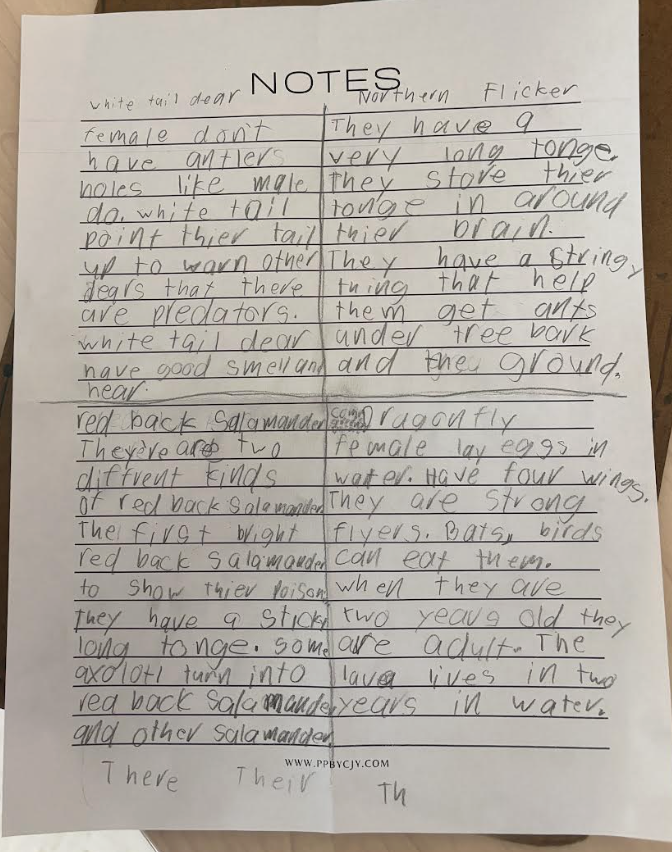 NOTES
white tail dear
female don't
have antlers
holes like male
do. white tail
point thier tail
up to warn other
dears that there
are predators.
white tail dear
have good smell and
hear.
Northern Flicker
They have a
very long tonge.
they store thier
tonge in around
thier brain.
They have a stringy
thing that help
them get ants
under tree bark
and the ground.
red back salamander
They're are two
diffrent kinds
of red back salamander
The first bright
red back salamander
to show thier poison
they have a sticky
long tonge. some
axolotl turn into
red back salamander
and other salamander
Dragonfly
female lay eggs in
water. Have four wings.
They are strong
flyers. Bats, birds
can eat them.
when they are
two years old they
are adult. The
lava lives in two
years in water.
WWW.PPBYCJY.COM
There Their Th